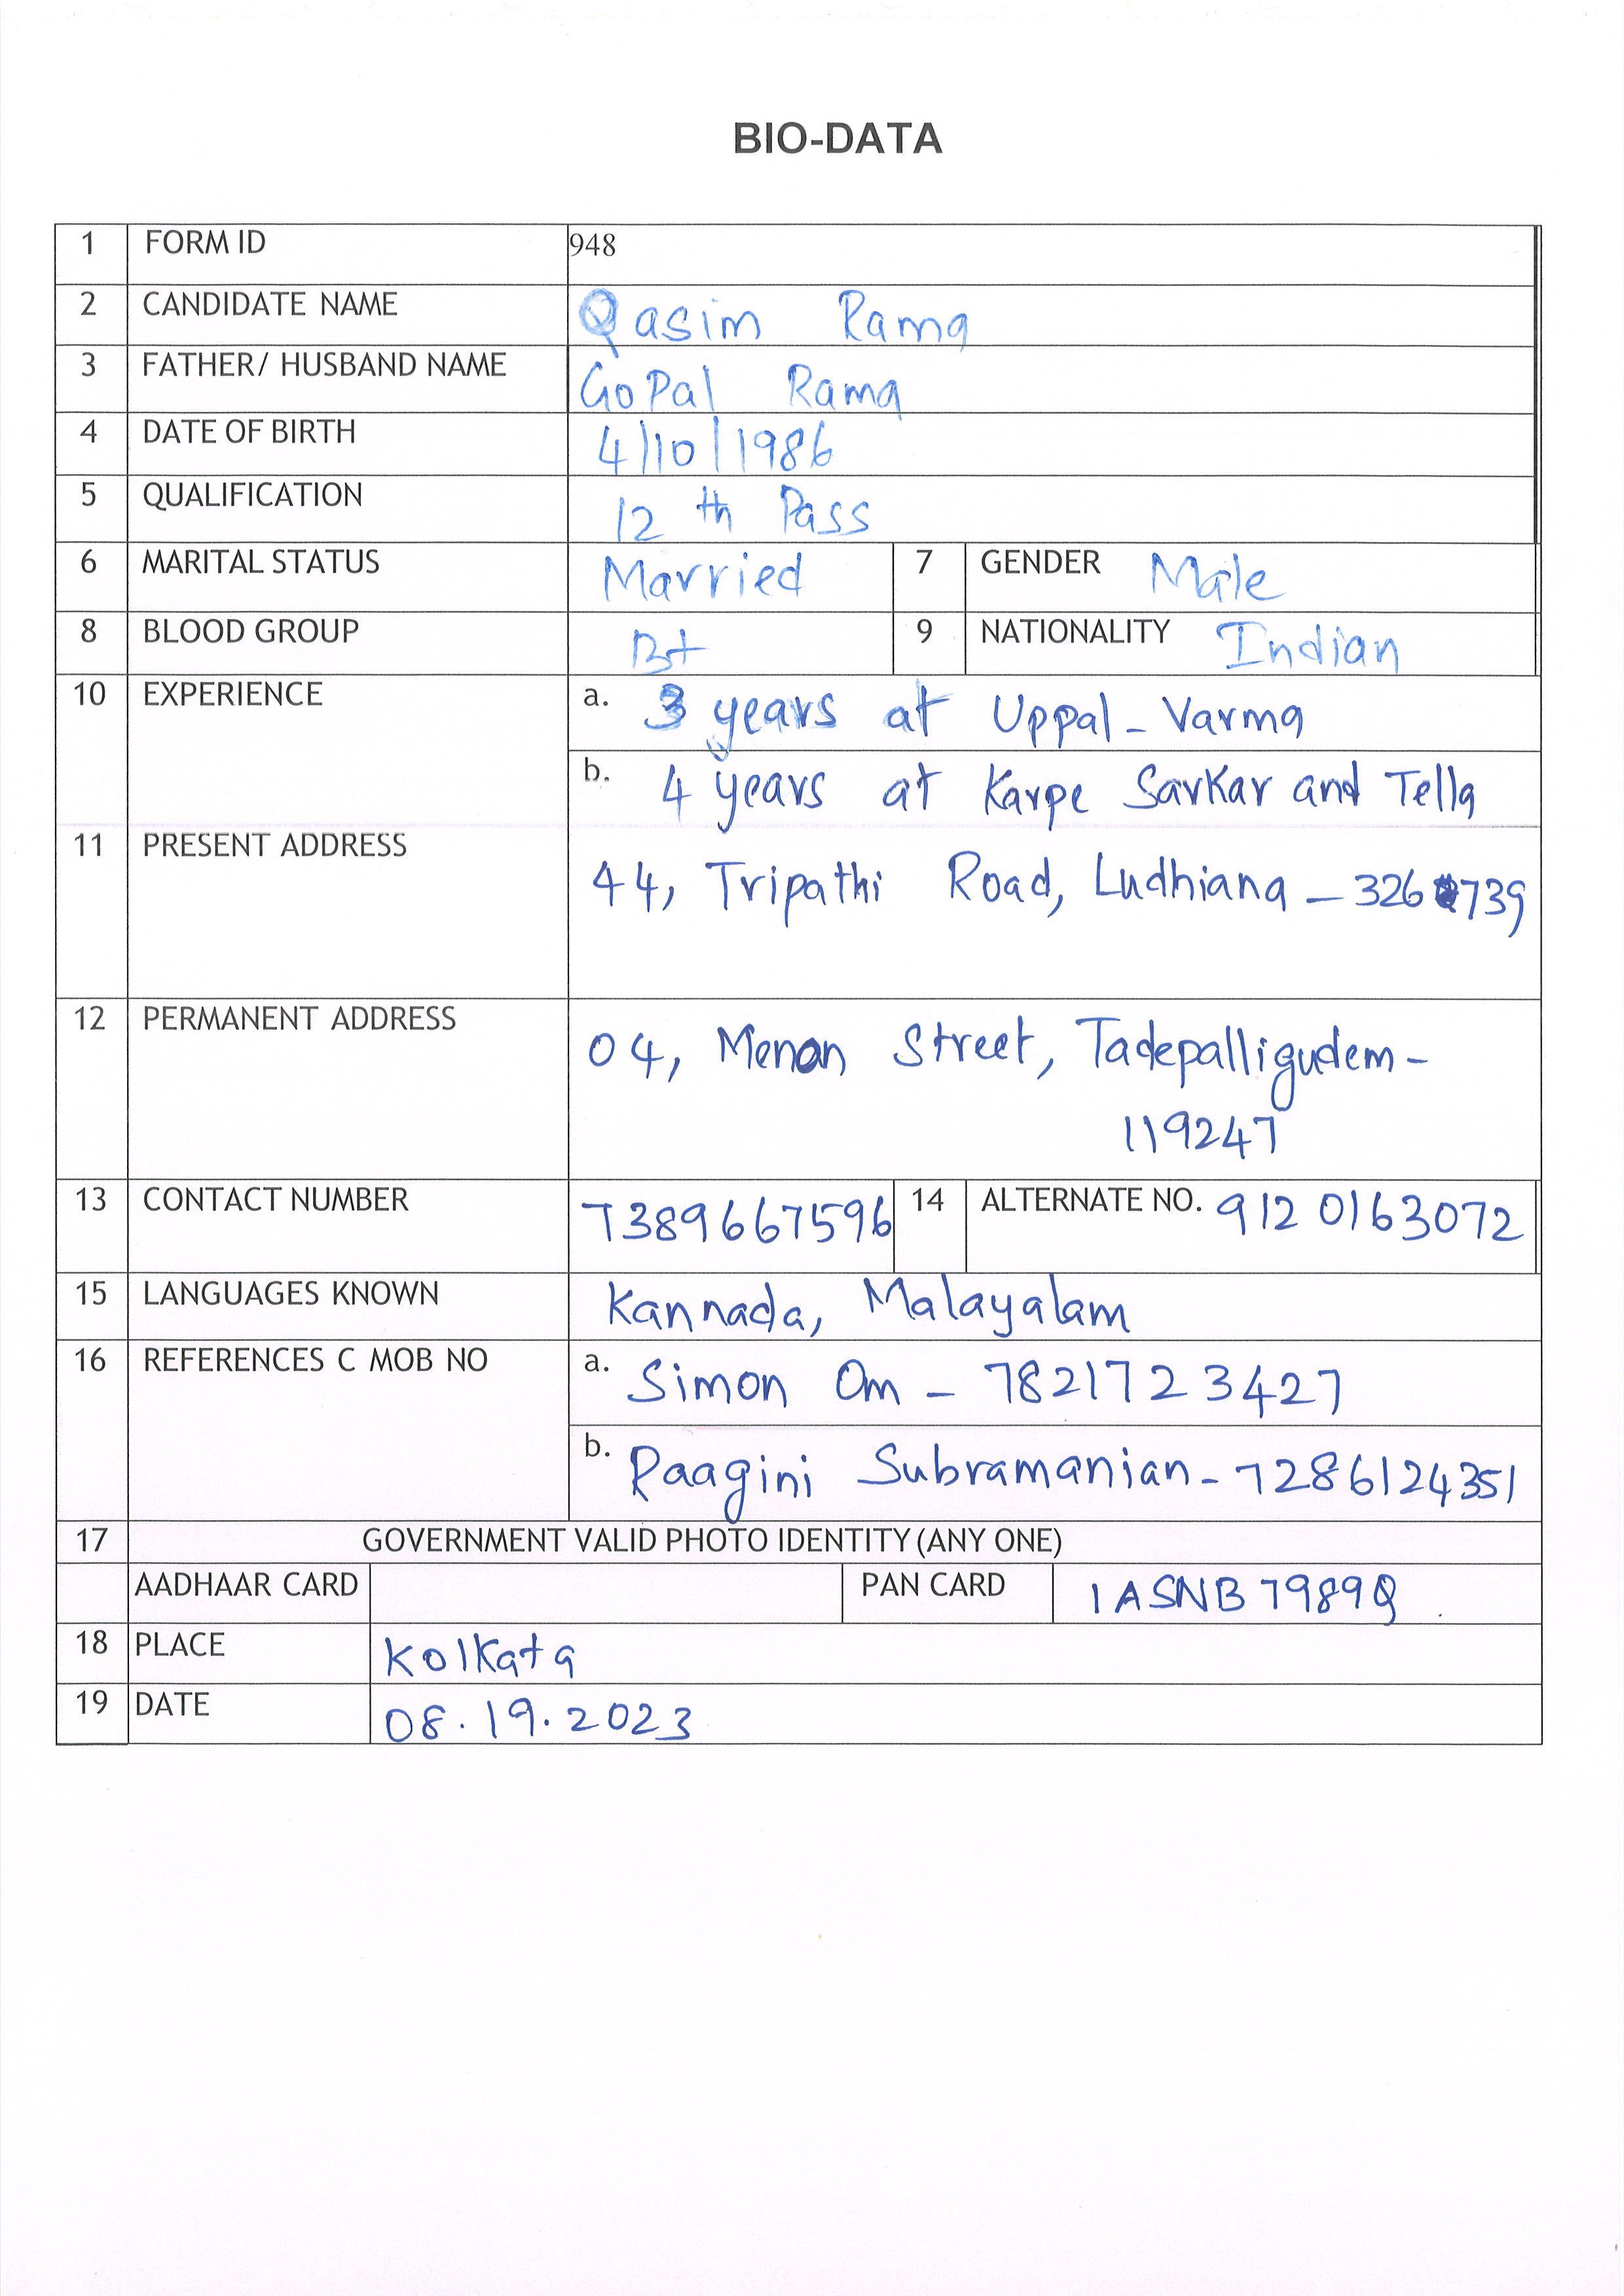 BIO-DATA
1 FORM ID 948
2 CANDIDATE NAME Qasim Rama
3 FATHER/ HUSBAND NAME GoPal Rama
4 DATE OF BIRTH 4/10/1986
5 QUALIFICATION 12 th Pass
6 MARITAL STATUS Married 7 GENDER Male
8 BLOOD GROUP B+ 9 NATIONALITY Indian
10 EXPERIENCE a. 3 years at Uppal - Varma
b. 4 years at Karpe Sarkar and Tella
11 PRESENT ADDRESS 44, Tripathi Road, Ludhiana - 326 739
12 PERMANENT ADDRESS 04, Menon Street, Tadepalligudem -
119247
13 CONTACT NUMBER 7389667596 14 ALTERNATE NO. 912 0163072
15 LANGUAGES KNOWN Kannada, Malayalam
16 REFERENCES C MOB NO a. Simon Om - 7821723427
b. Raagini Subramanian - 7286124351
17 GOVERNMENT VALID PHOTO IDENTITY (ANY ONE)
AADHAAR CARD PAN CARD IASNB7989Q
18 PLACE Kolkata
19 DATE 08.19.2023